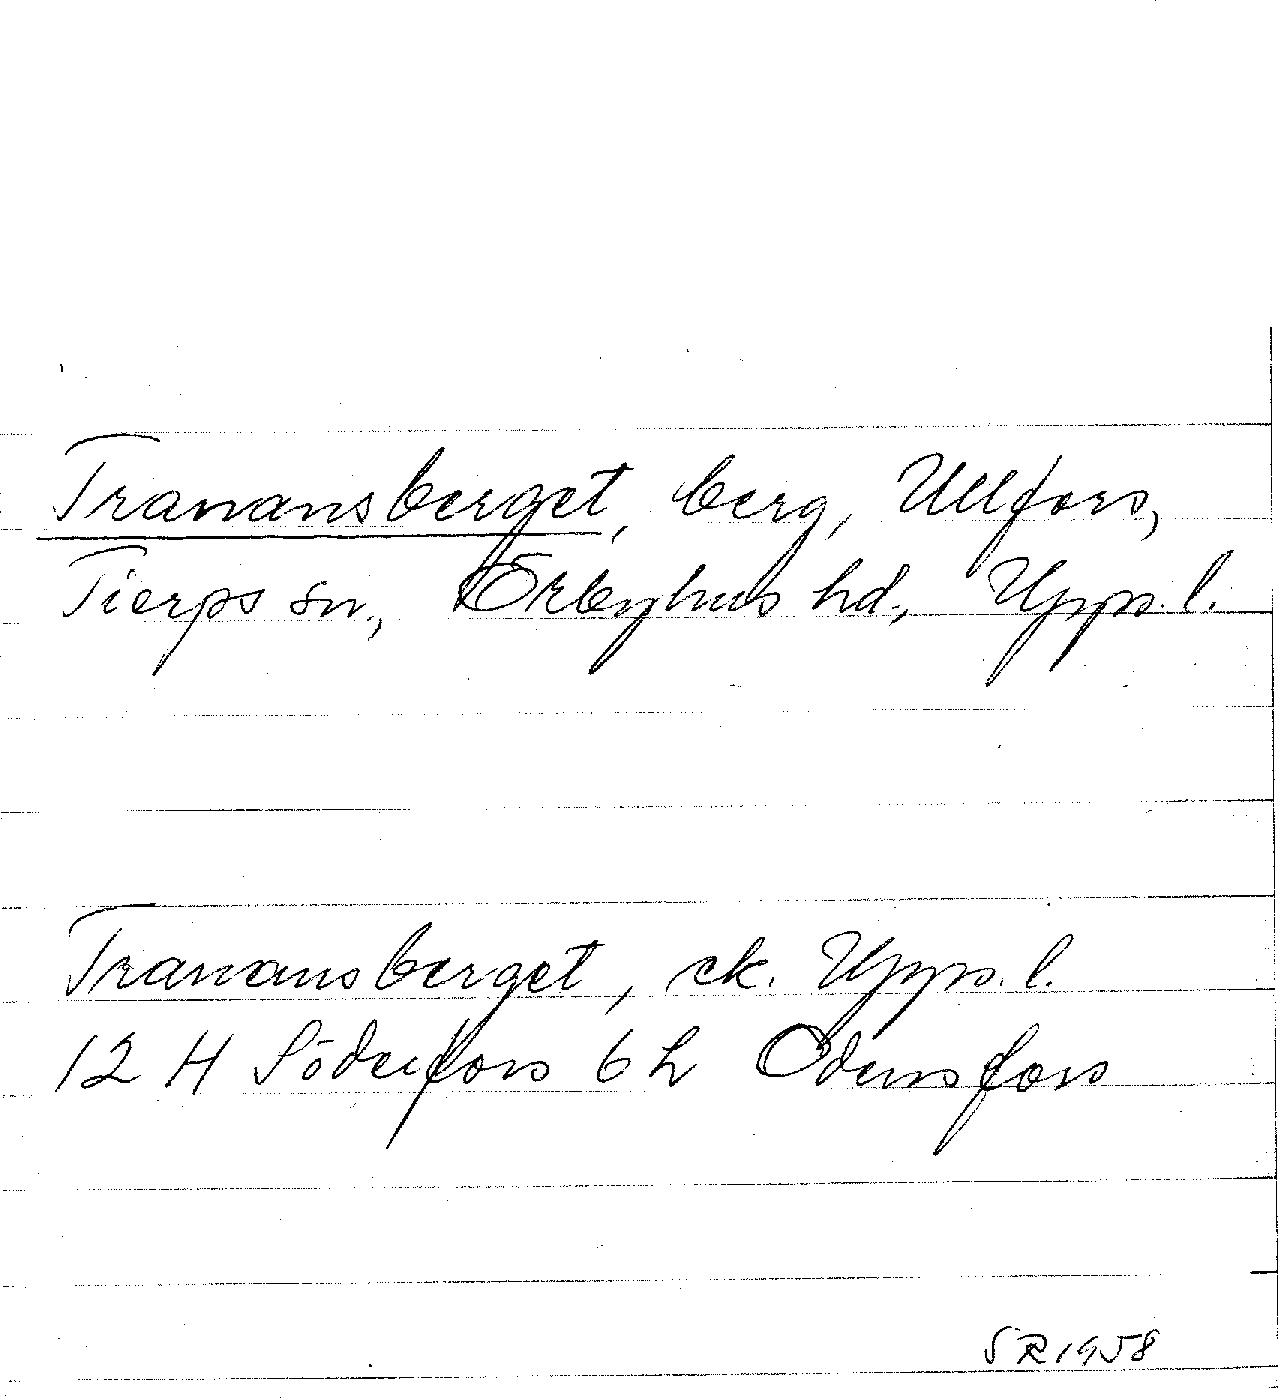 Tranansberget, berg, Ullfors,
Tierps sn., Örbyhus hd., Upps. l.
Tranansberget, ek. Upps. l.
12 H Söderfors 6 h Odensfors
SR 1958